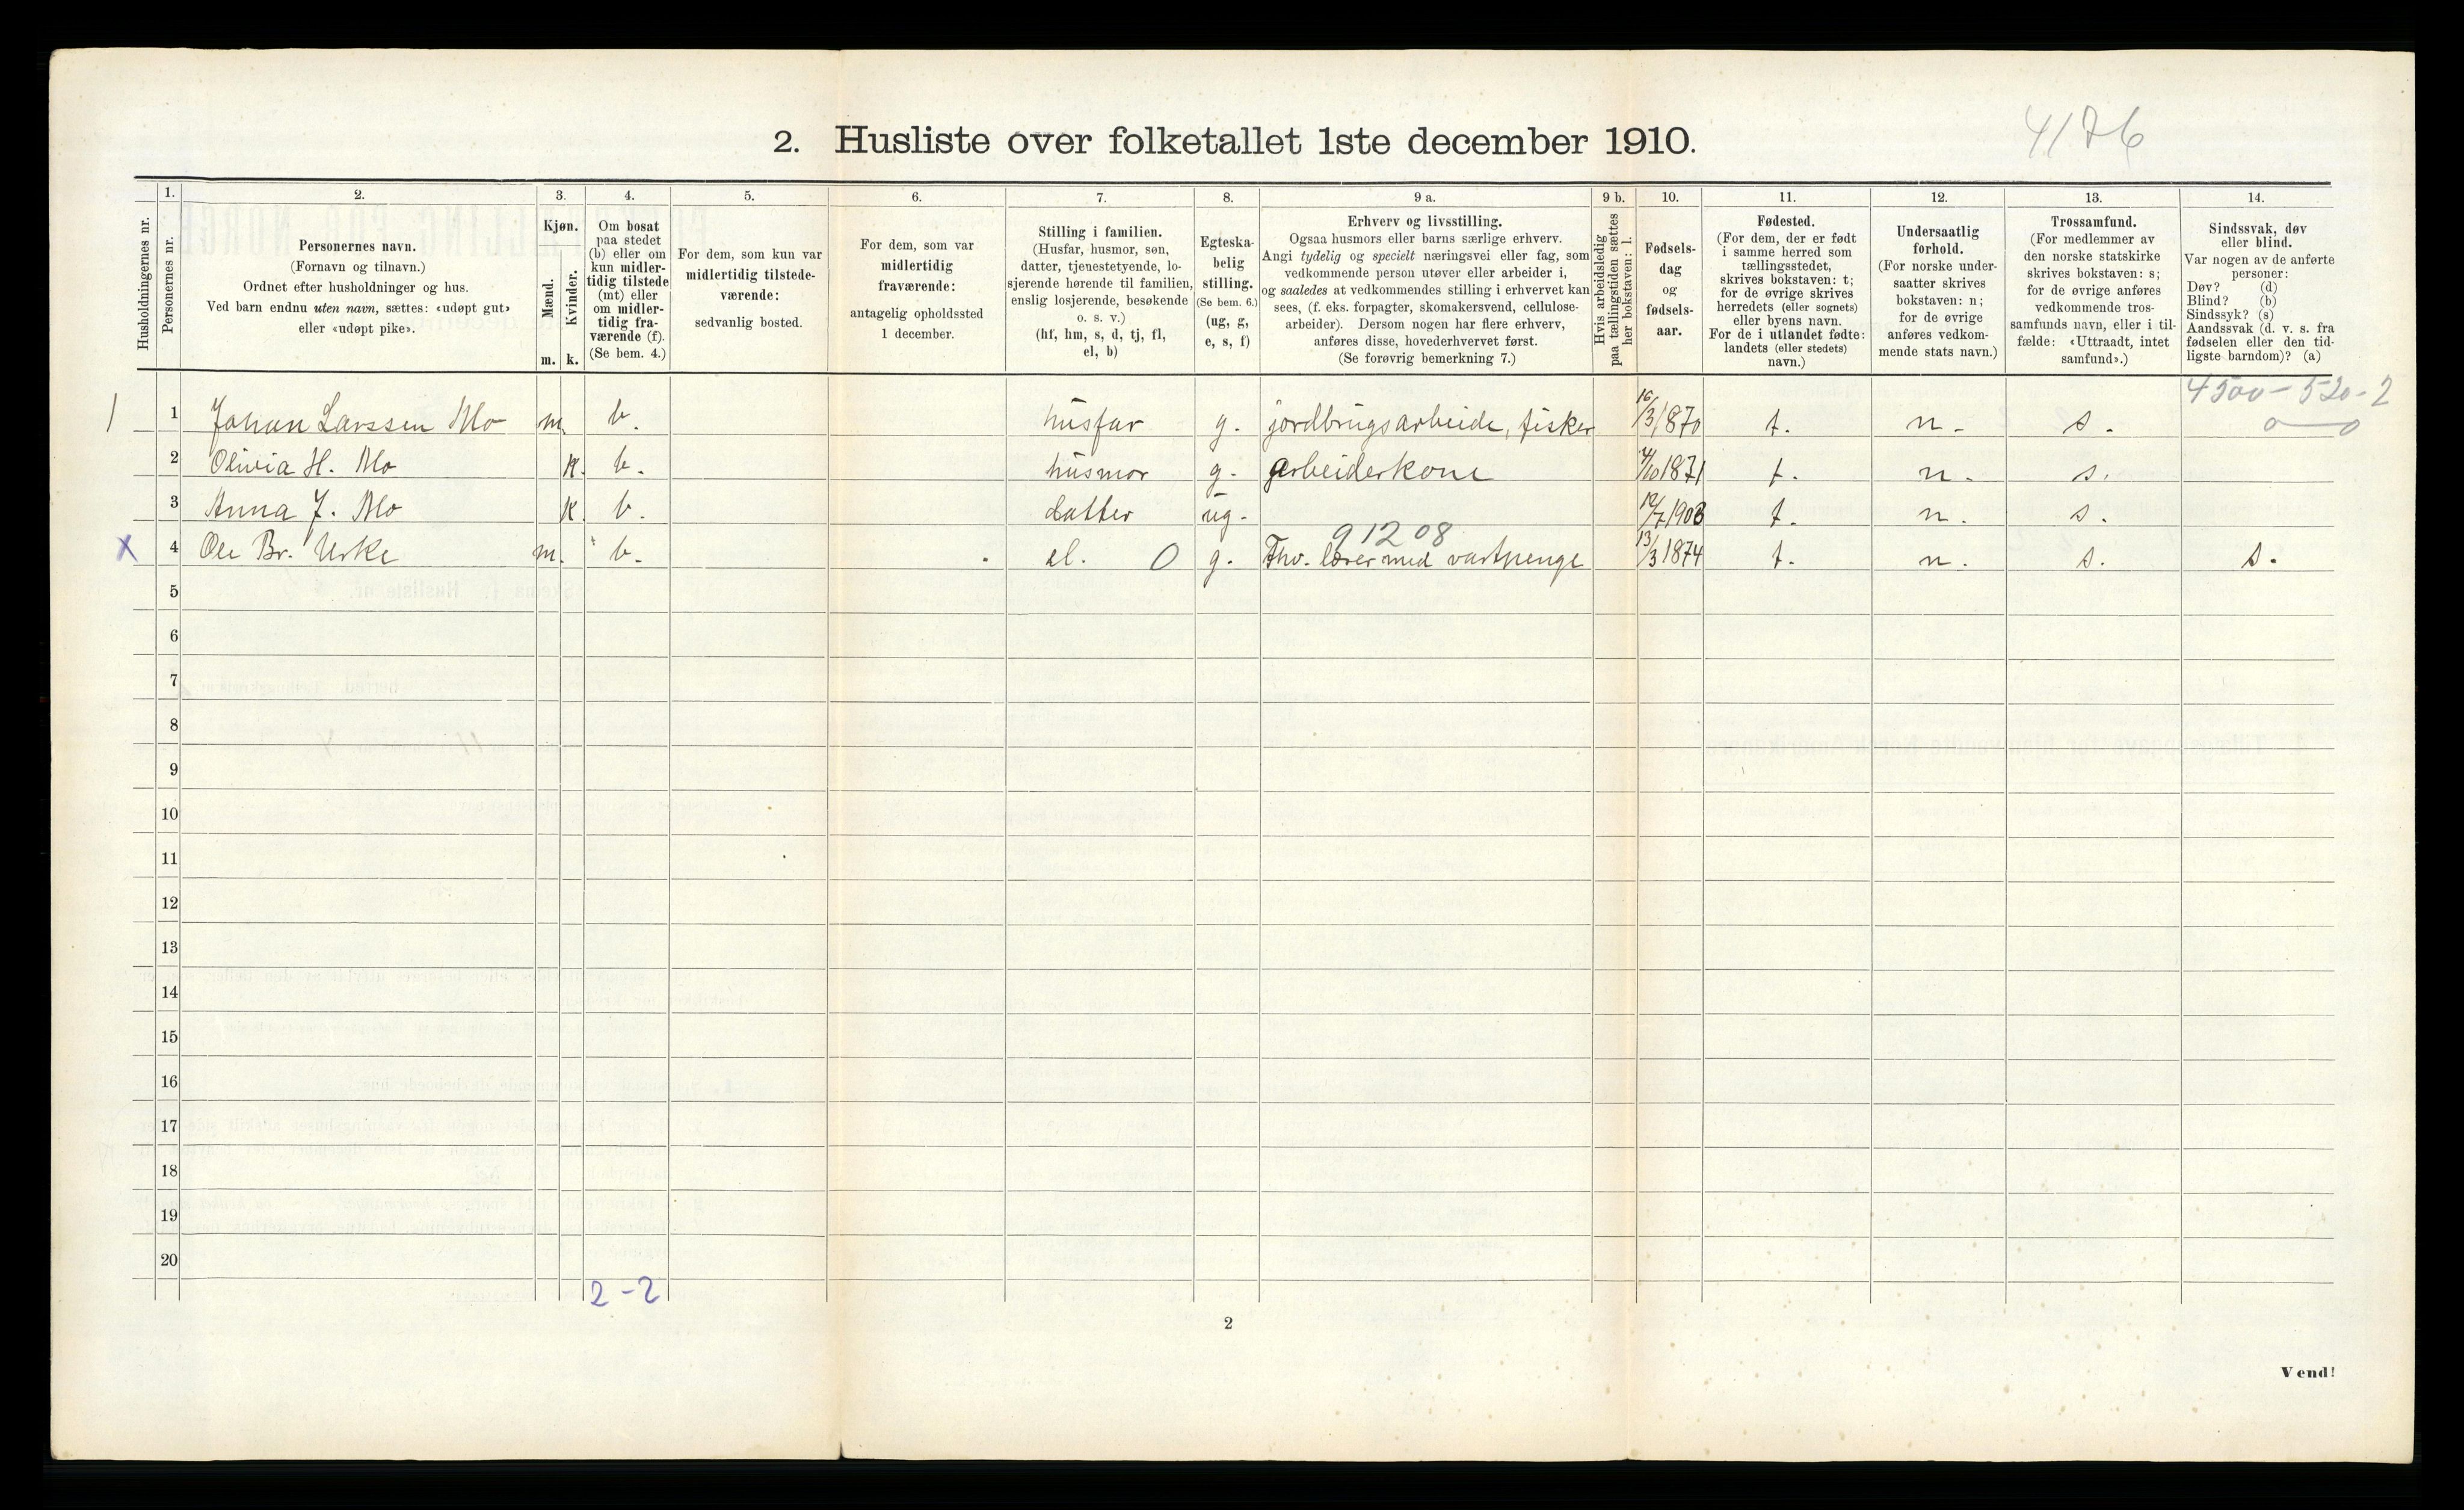 4176
2. Husliste over folketallet 1ste december 1910.
Husholdningernes nr.
1.
Personernes nr.
2.
Personernes navn.
(Fornavn og tilnavn.)
Ordnet efter husholdninger og hus.
Ved barn endnu uten navn, sættes: «udøpt gut»
eller «udøpt pike».
3.
Kjøn.
Mænd.
Kvinder.
m. k.
4.
Om bosat
paa stedet
(b) eller om
kun midler-
tidig tilstede
(mt) eller
om midler-
tidig fra-
værende (f).
(Se bem. 4.)
5.
For dem, som kun var
midlertidig tilstede-
værende:
sedvanlig bosted.
6.
For dem, som var
midlertidig
fraværende:
antagelig opholdssted
1 december.
7.
Stilling i familien.
(Husfar, husmor, søn,
datter, tjenestetyende, lo-
sjerende hørende til familien,
enslig losjerende, besøkende
o. s. v.)
(hf, hm, s, d, tj, fl,
el, b)
8.
Egteska-
belig
stilling.
(Se bem. 6.)
(ug, g,
e, s, f)
9 a.
Erhverv og livsstilling.
Ogsaa husmors eller barns særlige erhverv.
Angi tydelig og specielt næringsvei eller fag, som
vedkommende person utøver eller arbeider i,
og saaledes at vedkommendes stilling i erhvervet kan
sees, (f. eks. forpagter, skomakersvend, cellulose-
arbeider). Dersom nogen har flere erhverv,
anføres disse, hovederhvervet først.
(Se forøvrig bemerkning 7.)
9 b.
Hvis arbeidsledig
paa tællingstiden sættes
her bokstaven: l.
10.
Fødsels-
dag
og
fødsels-
aar.
11.
Fødested.
(For dem, der er født
i samme herred som
tællingsstedet,
skrives bokstaven: t;
for de øvrige skrives
herredets (eller sognets)
eller byens navn.
For de i utlandet fødte:
landets (eller stedets)
navn.)
12.
Undersaatlig
forhold.
(For norske under-
saatter skrives
bokstaven: n;
for de øvrige
anføres vedkom-
mende stats navn.)
13.
Trossamfund.
(For medlemmer av
den norske statskirke
skrives bokstaven: s;
for de øvrige anføres
vedkommende tros-
samfunds navn, eller i til-
fælde: «Uttraadt, intet
samfund».)
14.
Sindssvak, døv
eller blind.
Var nogen av de anførte
personer:
Døv? (d)
Blind? (b)
Sindssyk? (s)
Aandssvak (d. v. s. fra
fødselen eller den tid-
ligste barndom)? (a)
4500-520-2
0 0
1 1 Johan Larssen Mo m. b. husfar g. jordbrugsarbeide, fisker 16/3 1870 t. n. s.
2 Olivia H. Mo k. b. husmor g. arbeiderkone 4/10 1871 t. n. s.
3 Anna J. Mo k. b. datter ug. 12/7 1903 t. n. s.
91208
x 4 Ole Br. Urke m. b. el. 0 g. Fhv. lærer med vartpenge 13/3 1874 t. n. s. s.
5
6
7
8
9
10
11
12
13
14
15
16
17
18
19
20
2-2
2
Vend!